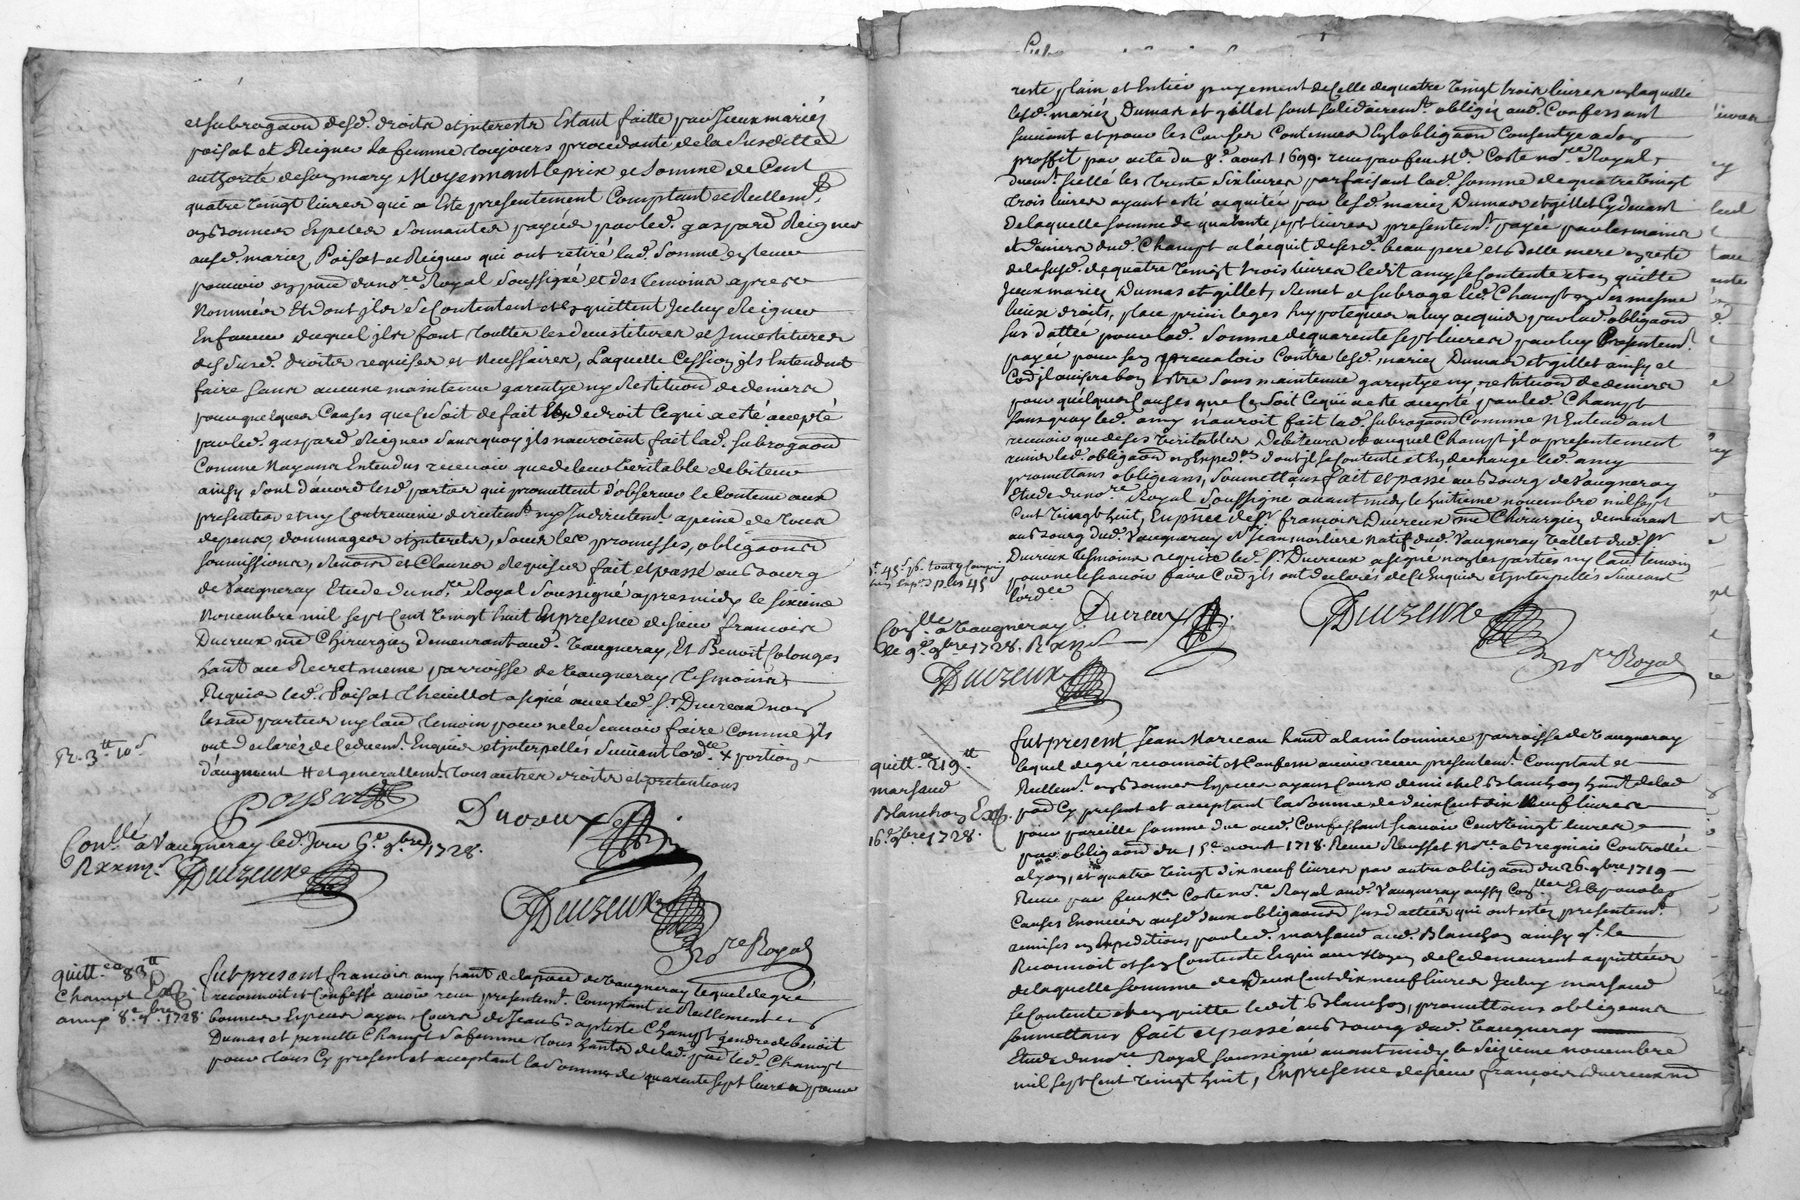 et subrogaõn desd. droits et interests Estant faitte par Iceux mariés
poisat et Reigner sa femme toujours procedante de la susditte
authorité de son mary Moyennant le prix et Somme de Cent
quatre vingt livres qui a Esté presentement Comptant et Reellemt.
en bonnes Especes sonnantes payée par led. gaspard Reigner
ausd. mariez Poisat et Reigner qui ont retiré lad. Somme en leur
pouvoir en pnce du nore Royal soussigné et des temoins apres
Nommés Et dont ils se Contentent et en quittent Iceluy Reigner
En faveur duquel ils font touttes les devestitures et Investitures
desd. droits requises et Necessaires, Laquelle Cession ils Entendent
faire sans aucune maintenue garentye ny Restitution de deniers
pour quelques Causes que ce soit de fait Et de droit Ce qui a esté accepté
par led. gaspard Reigner sans quoy ils n'auroient fait lad. subrogaõn
Comme N'ayans Entendus recevoir que de leur veritable debiteur
ainsy sont d'acord lesd. parties qui promettent d'observer le Contenu aux
presentes et ny Contrevenir directemt. ny Indirectemt. a peine de tous
depens, dommages et interets, sous les promesses, obligaõns
soumissions, Renons et Clauses Requises fait et passé au bourg
de Vaugneray Etude du nore Royal soussigné apres midy le sixieme
Novembre mil sept Cent vingt huit En presence de sieur francois
Ducreux me Chirurgien demeurant aud. Vaugneray, Et Benoit Colonges
hant au Recret meme parroisse de Vaugneray tesmoins
Requis led. Poisat a signé avec led. sr Ducreux non
lesaud parties ny laud temoin pour ne le scavoir faire Comme ils
ont declarés de ce duemt. Enquis et interpellés suivant lordce + portion
d'augment # et generallemt. tous autres droits et pretentions
R. 3tt 10s
Poysat
Ducreux
Conllé a Vaugneray led. Jour 6e 9bre 1728.
Ducreux
Ducreux
nore Royal
quittce 83tt
Champt
amy 8e 9bre 1728.
fut present francois amy hant de la prsse de Vaugneray lequel de gré
reconnoit et Confesse avoir receu presentemt. Comptant et Reellement en
bonnes Especes ayant Cours de Jean baptiste Champt gendre de benoit
Dumas et pernette Champt sa femme tous hants de lad. prsse led. Champt
pour tous Cy present et acceptant la Somme de quarente sept livres pour
reste plain et Entier payement de Celle de quatre vingt trois livres en laquelle
lesd. mariéz Dumas et gillet sont solidairemt. obligéz aud. Confessant
suivant et pour les Causes Contenues En l'obligaõn Consentye a son
proffit par acte du 8e aoust 1699. receu par feu Me Coste nore Royal,
duemt. scellé les trente six livres parfaisant lad. somme de quatre vingt
trois livres ayant esté acquitée par lesd. mariéz Dumas et gillet Cydevant
De laquelle somme de quarente sept livres presentemt. payée par les mains
et deniers dud. Champt a l'acquit de sesd. beau pere et belle mere en reste
de la susd. de quatre vingt trois livres ledit amy se Contente et en quitte
Iceux mariéz Dumas et gillet, Remet et subroge led. Champt en ses mesme
lieux droits, place privileges hypoteques a luy acquis par lad. obligaõn
sus dattée pour lad. Somme de quarente sept livres par luy Presentemt.
payée pour s'en prevaloir Contre lesd. mariéz Dumas et gillet ainsy et
Co͠e il avisera bon estre Sans maintenue garentye ny restitution de deniers
pour quelques Causes que Ce soit Ce qui a esté accepté par led. Champt
sans quoy led. amy n'auroit fait lad. subrogaõn Comme N'Entendant
recevoir que de ses veritables debiteurs et auquel Champt il a presentement
remis led. obligaõn en Expedon dont il se Contente et En decharge led. amy
promettans obligeans, soumettans fait et passé au bourg de Vaugneray
Etude du nore Royal soussigné avant midy le huitieme novembre mil sept
Cent vingt huit, En pnce de Sr françois Ducreux me Chirurgien demeurant
au bourg dud. Vaugneray et Jean morliere natif dud. Vaugneray vallet dud. Sr
Ducreux tesmoins requis led. Sr Ducreux a signé non les parties ny laud temoin
pour ne le scavoir faire Co͠e ils ont declarés de Ce Enquis et interpellés suivant
lordce
Conllé a Vaugneray
le 9e 9bre 1728.
Ducreux
Ducreux
Ducreux
nore Royal
quittce 219tt
marsaud
Blanchon
16e 9bre 1728.
fut present Jean Marsau hant a la milonniere parroisse de Vaugneray
lequel de gré reconnoit et Confesse avoir receu presentemt. Comptant et
Reellemt. en bonnes Especes ayans Cours de michel Blanchon hant de lad
prsse Cy present et acceptant la Somme de deux Cent dix Neuf livres
pour pareille somme due aud. Confessant scavoir Cent vingt livres
par obligaõn du 15e aoust 1718. Receue Rousset Nore a bregniais Controllée
a lyon, et quatre vingt dix neuf livres par autre obligaõn du 26. 9bre 1719
Receue par feu Me Coste nore Royal aud. Vaugneray aussy Conllée Et Ce pour les
Causes Enoncées ausd. deux obligaõns sus dattées qui ont estéz presentemt.
remises en Expeditions par led. marsaud aud. Blanchon ainsy qt. le
Reconnoit et s'en Contente Et qui au moyen de Ce demeurent acquittées
de laquelle somme de Deux Cent dix neuf livres Iceluy marsaud
se Contente et en quitte ledit Blanchon, promettans obligeans
soumettans fait et passé au bourg dud. Vaugneray
Etude du nore Royal soussigné avant midy le Seizieme novembre
mil sept Cent vingt huit, En presence de sieur françois Ducreux me